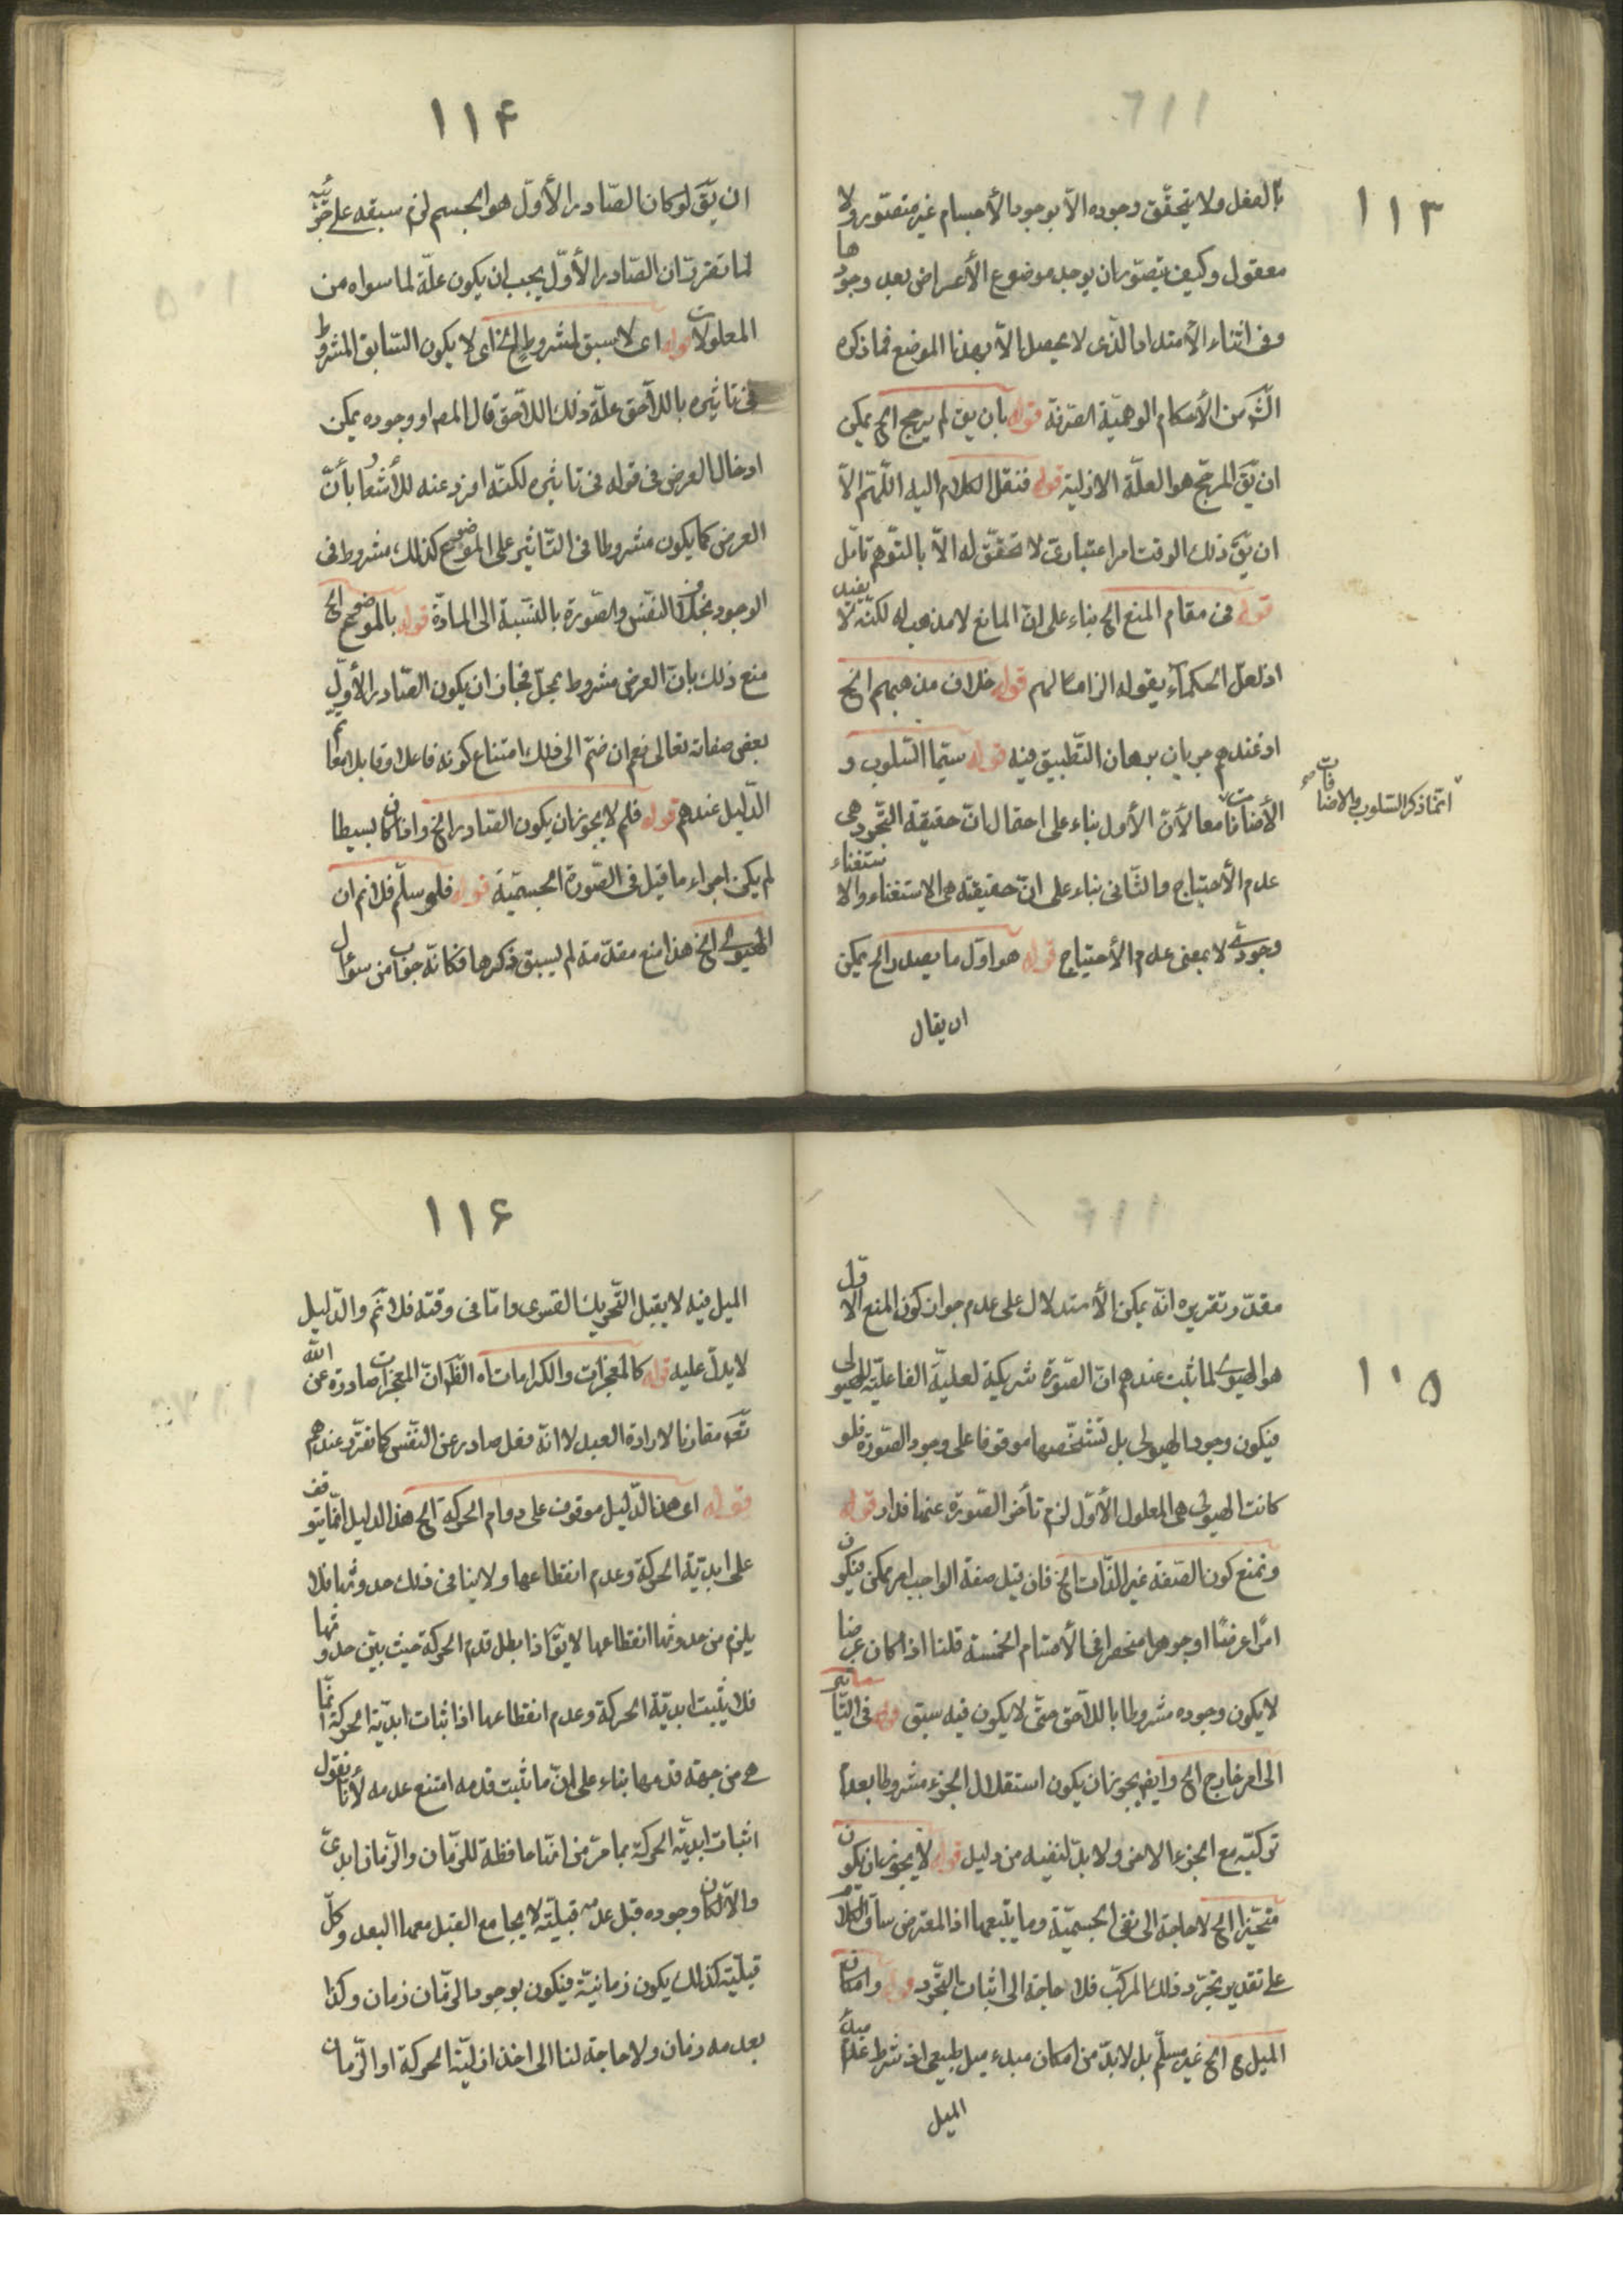 ١١٣
بالفعل ولا يتحقّق وجوده الاّ بوجود الأجسام غير متصوّر ولا
معقول وكيف يتصوّر ان يوجد موضوع الأعراض بعد وجودها
وفى اثناء الأمتداد الّذى لا يحصل الاّ بهذا الموضع فما ذكره
الشّ من الأحكام الوهميّة الصّرفة قوله بان يق لم يرجح الخ يمكن
ان يقّ المرجّح هو العلّة الازليّة قوله فننقل الكلام اليه اللّهمّ الاّ
ان يقّ ذلك الوقت امر اعتبارىّ لا تحقّق له الاّ بالتّوهم تامّل
قوله فى مقام المنع الخ بناء على انّ المانع لا مذهب له لكنّه لا يفيد
اذ لعلّ الحكماء يقوله الزاما لهم قوله خلاف مذهبهم الخ
اذ عندهم جريان برهان التّطبيق فيه قوله سيّما السّلوب و
الأضافات معا لأنّ الأول بناء على احتمال انّ حقيقة التّجرد هى
عدم الأحتياج والثّانى بناء على انّ حقيقته هى الاستغناء والاستغناء
وجودىّ لا بمعنى عدم الأحتياج قوله هو اوّل ما يصدر الخ يمكن
ان يقال
انّما ذكر السّلوب والاضافات
١١۴
ان يقّ لو كان الصّادر الأوّل هو الجسم لزم سبقه على جزئيه
لما تقرر ان الصّادر الأوّل يجب ان يكون علّة لما سواه من
المعلولات قوله اى لا سبق لمشروط الخ اى لا يكون السّابق المشروط
فى تاثيره باللاّحق علّة ذلك اللاّحق قال المص او وجوده يمكن
ادخال العرض فى قوله فى تاثيره لكنّه افرد عنه للأشعار بأنّ
العرض كما يكون مشروطا فى التّاثير على الموضوع كذلك مشروط فى
الوجود بخلاف النّفس والصّورة بالنّسبة الى المادّة قوله بالموضوع الخ
منع ذلك بانّ العرض مشروط بمحلّ فجاز ان يكون الصّادر الأوّل
بعض صفاته تعالى نعم ان ضمّ الى ذلك امتناع كونه فاعلا وقابلا معا تم
الدّليل عندهم قوله فلم لا يجوز ان يكون الصّادر الخ واذا كان بسيطا
لم يكن اجراء ما قيل فى الصّورة الجسميّة قوله فلو سلّم فلا نم ان
الهيولى الخ هذا منع مقدّمة لم يسبق ذكرها فكانّه جواب من سؤال
١١۵
مقدّر تقريره انّه يمكن الأستدلال على عدم جواز كون المنع الاول
هو الهيولى لما ثبت عندهم انّ الصّورة شريكة لعليّة الفاعليّة للهيولى
فيكون وجود الهيولى بل تشخّصها موقوفا على وجود الصّورة فلو
كانت الهيولى هى المعلول الأوّل لزم تأخر الصّورة عنها فدار قوله
ونمنع كون الصّفة غير الذّات الخ فان قيل صفة الواجب امر ممكن فيكون
امرا عرضيّا او جوهرا منحصرا فى الأقسام الخمسة قلنا اذا كان عرضا
لا يكون وجوده مشروطا باللاّحق حتّى لا يكون فيه سبق قوله فى التّاثير
الى امر خارج الخ وايض يجوز ان يكون استقلال الجزء مشروطا بعدم
تركبّه مع الجزء الاخر ولا بدّ لنفيه من دليل قوله لا يجوز ان يكون
متحيّزا الخ لا حاجة الى نفى الجسميّة وما يتبعها اذ المعترض ساق الكلام
على تقدير تجرّد ذلك المركبّ فلا حاجة الى اثبات التّجرّد قوله وامكان
الميل ح الخ غير مسلّم بل لا بدّ من امكان مبدء ميل طبيعى اذ شرط عدم مبدء
الميل
١١۶
الميل فيه لا يقبل التّحريك القسرى وامّا فى وقته فلا نم والدّليل
لا يدلّ عليه قوله كالمعجزات والكرامات اه الظّ انّ المعجزات صادرة عن الله
تعّ مقارنا لارادة العبد لا انّه فعل صادر عن النّفس كما تقرّر عندهم
قوله اى هذا الدّليل موقوف على دوام الحركة الخ هذا الدليل انّما يتوقف
على ابديّة الحركة وعدم انقطاعها ولا ينافى ذلك حدوثها فلا
يلزم من حدوثها انقطاعها لا يقّ اذا بطل قدم الحركة حيث بيّن حدوثها
فلا يثبت ابديّة الحركة وعدم انقطاعها اذ اثبات ابديّة الحركة انّما
هى من جهة قدمها بناء على انّ ما ثبت قدمه امتنع عدمه لأنا نقول
اثبات ابديّة الحركة بما مرّ من انّها حافظة للزّمان والزّمان ابدىّ
والاّ لكان وجوده قبل عدمه قبليّة لا يجامع القبل معها البعد وكلّ
قبليّة كذلك يكون زمانيّة فيكون بوجود الزّمان زمان وكذا
بعدمه زمان ولا حاجة لنا الى اخذ ازليّة الحركة او الزّمان